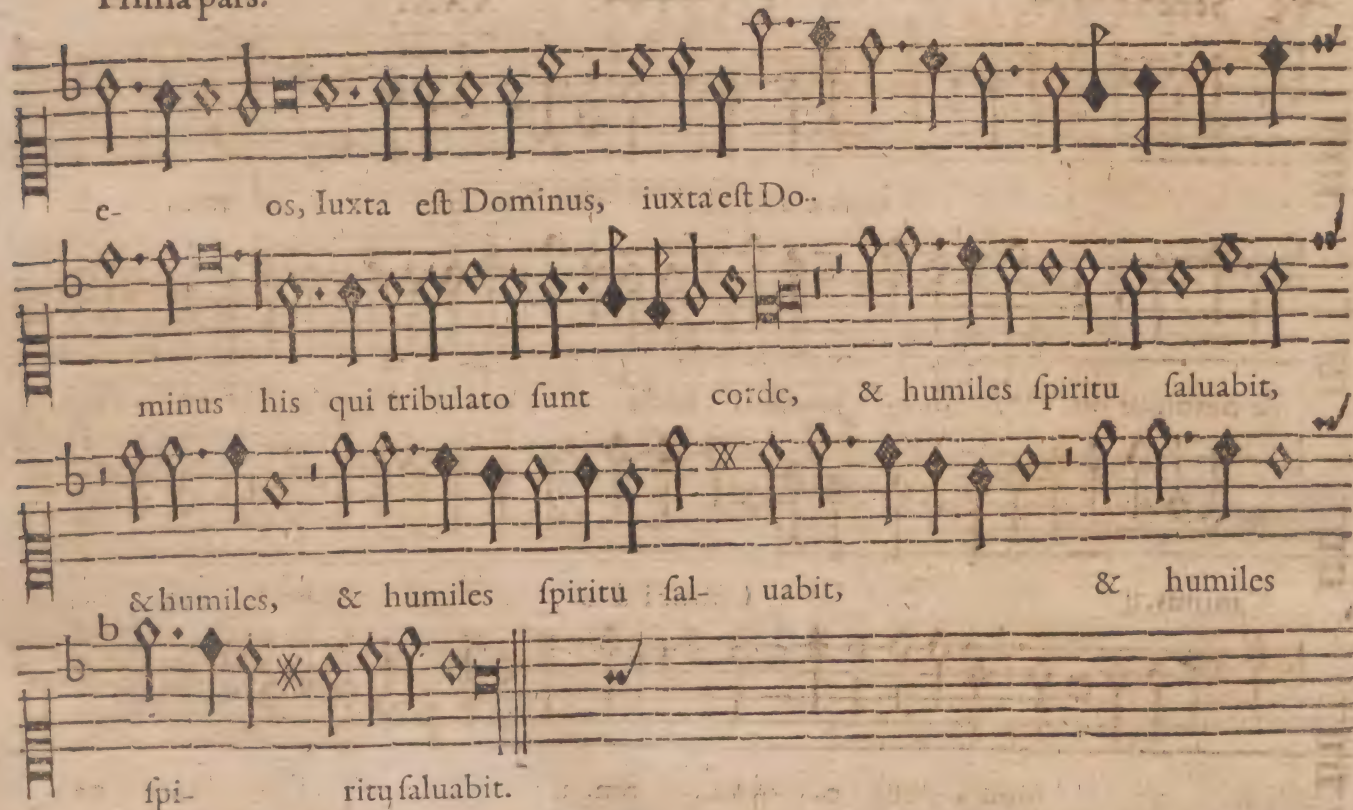 Prima pars.
e- os, Iuxta eſt Dominus, iuxta eſt Do-
minus his qui tribulato ſunt corde, & humiles ſpiritu ſaluabit,
& humiles, & humiles ſpiritu ſal- uabit, & humiles
ſpi- ritu ſaluabit.